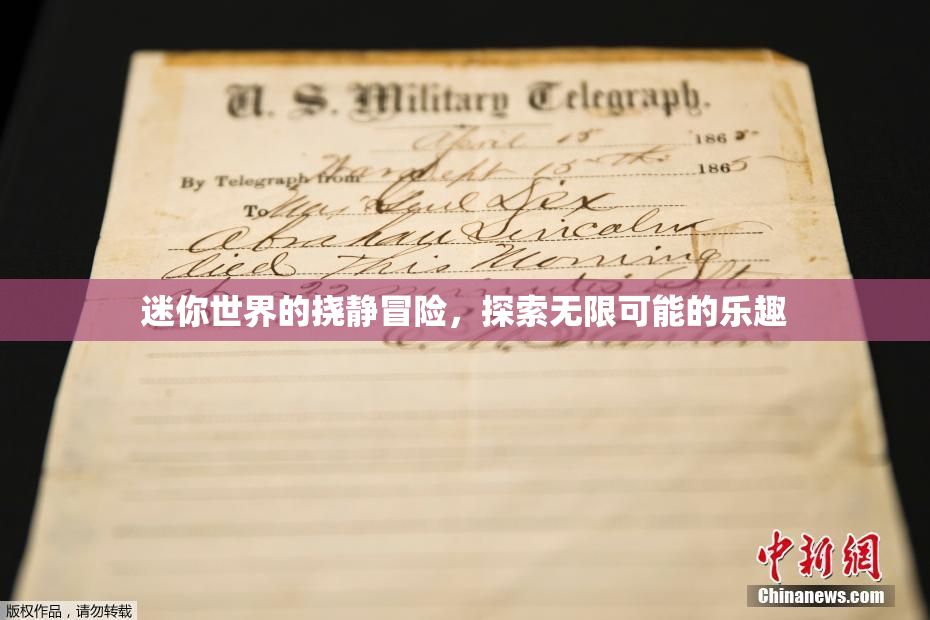 U. S. Military Telegraph.
April 15 1865
By Telegraph from War Dept 15th 1865
To Maj Genl Dix
Abraham Lincoln
died This Morning
at 22 minutes after
迷你世界的挠静冒险，探索无限可能的乐趣
E. M. Stanton
中新网
Chinanews.com
版权作品，请勿转载